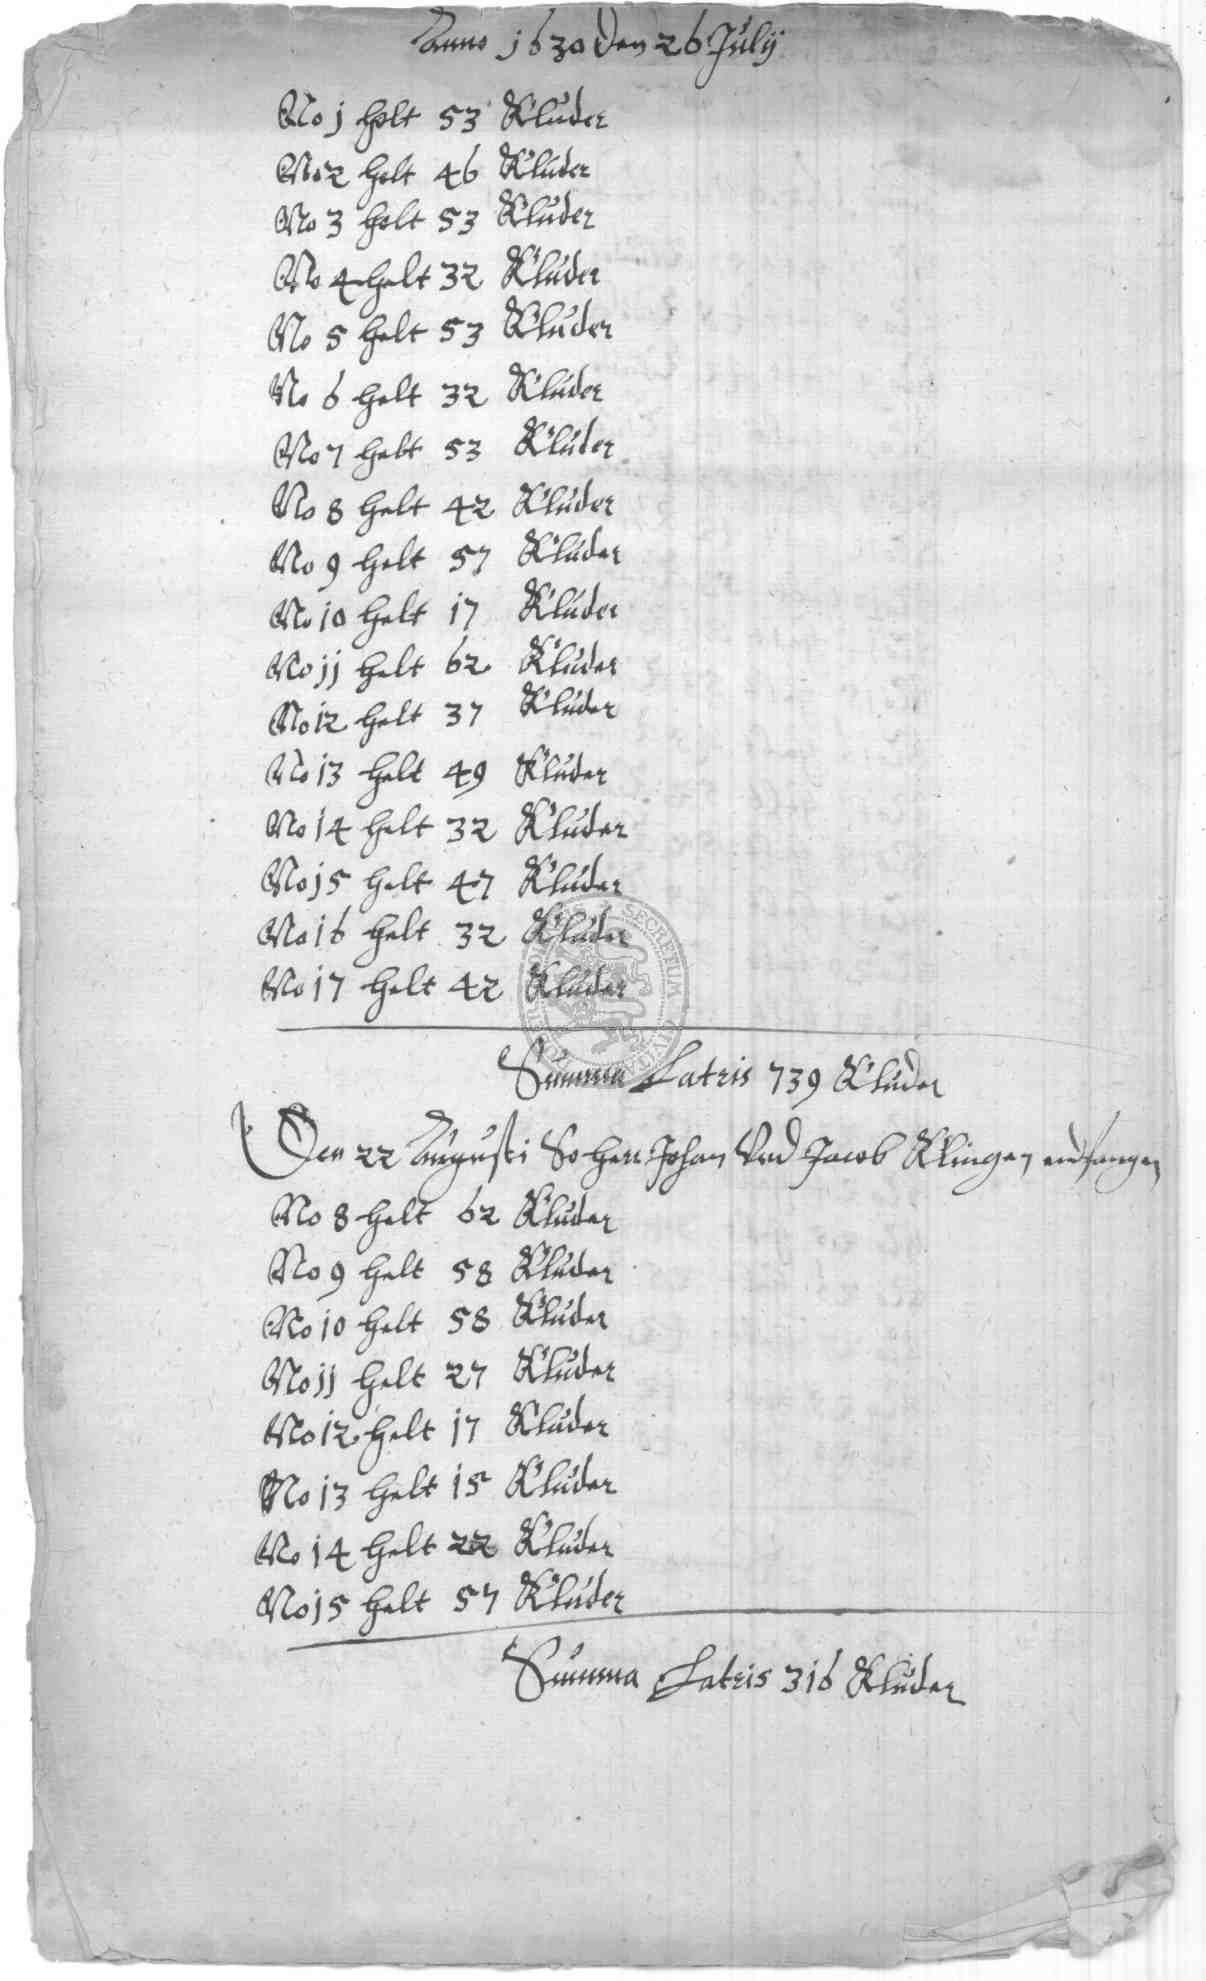 Anno 1630 den 26 Julij
No 1 helt 53 Kluder
No 2 helt 46 Kluder
No 3 helt 53 Kluder
No 4 helt 32 Kluder
No 5 helt 53 Kluder
No 6 helt 32 Kluder
No 7 helt 53 Kluder
No 8 helt 42 Kluder
No 9 helt 57 Kluder
No 10 helt 17 Kluder
No 11 helt 62 Kluder
No 12 helt 37 Kluder
No 13 helt 49 Kluder
No 14 helt 32 Kluder
No 15 helt 47 Kluder
No 16 helt 32 Kluder
No 17 helt 42 Kluder
SECRETUM CIVITA
Summa Latris 739 Kluder
Den 22 Augusti So herr Johan Vnd Jacob Klingen endfangen
No 8 helt 62 Kluder
No 9 helt 58 Kluder
No 10 helt 58 Kluder
No 11 helt 27 Kluder
No 12 helt 17 Kluder
No 13 helt 15 Kluder
No 14 helt 22 Kluder
No 15 helt 57 Kluder
Summa Latris 316 Kluder